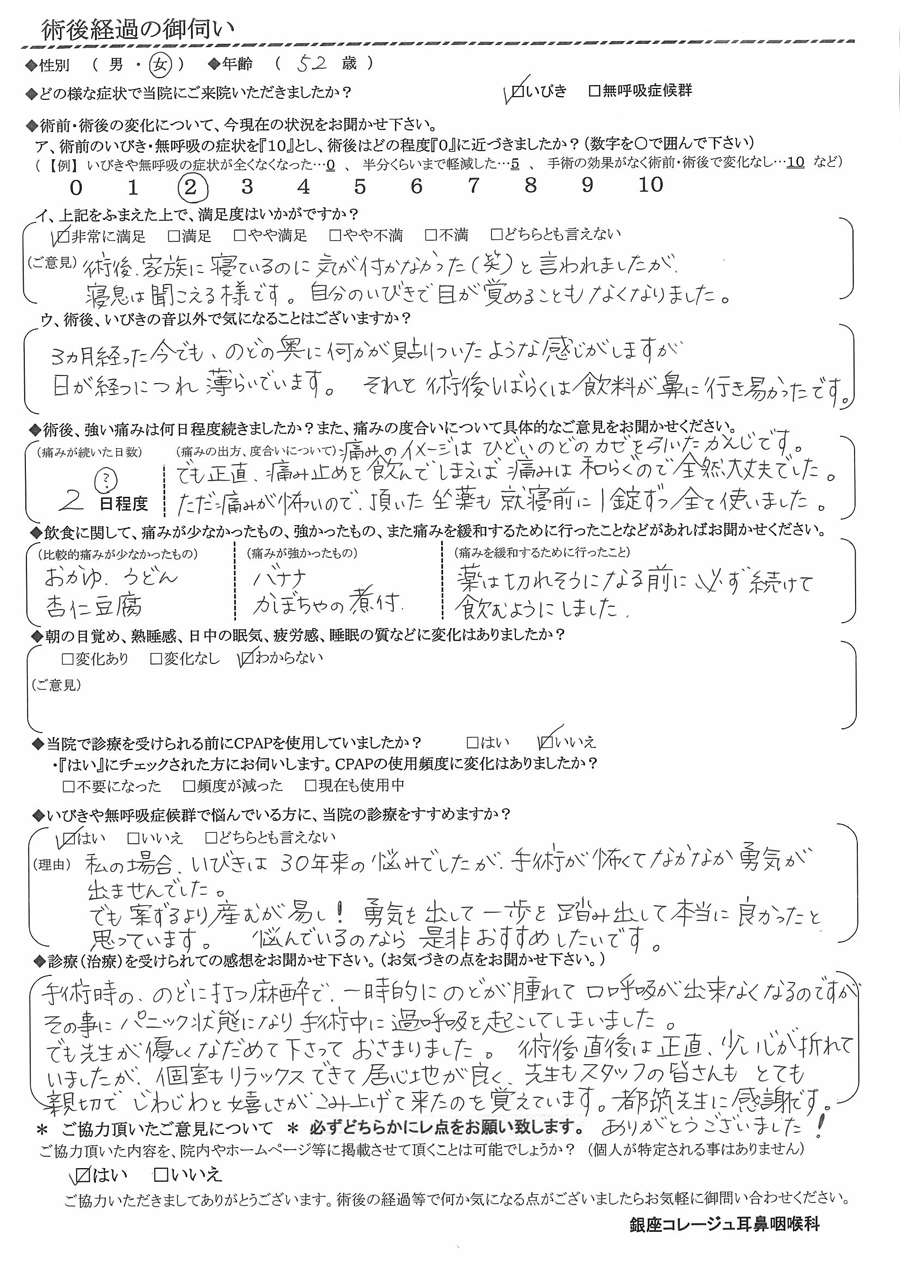 術後経過の御伺い
◆性別 （ 男 ・ 女 ） ◆年齢 （ 52 歳 ）
◆どの様な症状で当院にご来院いただきましたか？ ☑いびき □無呼吸症候群
◆術前・術後の変化について、今現在の状況をお聞かせ下さい。
ア、術前のいびき・無呼吸の症状を『10』とし、術後はどの程度『0』に近づきましたか？（数字を○で囲んで下さい）
（【例】いびきや無呼吸の症状が全くなくなった…0 、 半分くらいまで軽減した…5 、 手術の効果がなく術前・術後で変化なし…10 など）
0 1 2 3 4 5 6 7 8 9 10
イ、上記をふまえた上で、満足度はいかがですか？
☑非常に満足 □満足 □やや満足 □やや不満 □不満 □どちらとも言えない
（ご意見） 術後、家族に寝ているのに気が付かなかった（笑）と言われましたが、
寝息は聞こえる様です。自分のいびきで目が覚めることもなくなりました。
ウ、術後、いびきの音以外で気になることはございますか？
3ヵ月経った今でも、のどの奥に何かが貼りついたような感じがしますが
日が経つにつれ薄らいでいます。 それと術後しばらくは飲料が鼻に行き易かったです。
◆術後、強い痛みは何日程度続きましたか？また、痛みの度合いについて具体的なご意見をお聞かせください。
（痛みが続いた日数） （痛みの出方、度合いについて） 痛みのイメージはひどいのどのカゼを引いたかんじです。
でも正直、痛み止めを飲んでしまえば痛みは和らぐので全然大丈夫でした。
2 ? 日程度 ただ痛みが怖いので、頂いた坐薬も就寝前に1錠ずつ全て使いました。
◆飲食に関して、痛みが少なかったもの、強かったもの、また痛みを緩和するために行ったことなどがあればお聞かせください。
（比較的痛みが少なかったもの） （痛みが強かったもの） （痛みを緩和するために行ったこと）
おかゆ、うどん バナナ 薬は切れそうになる前に必ず続けて
杏仁豆腐 かぼちゃの煮付、 飲むようにしました。
◆朝の目覚め、熟睡感、日中の眠気、疲労感、睡眠の質などに変化はありましたか？
□変化あり □変化なし ☑わからない
（ご意見）
◆当院で診療を受けられる前にCPAPを使用していましたか？ □はい ☑いいえ
・『はい』にチェックされた方にお伺いします。CPAPの使用頻度に変化はありましたか？
□不要になった □頻度が減った □現在も使用中
◆いびきや無呼吸症候群で悩んでいる方に、当院の診療をすすめますか？
☑はい □いいえ □どちらとも言えない
（理由） 私の場合、いびきは30年来の悩みでしたが、手術が怖くてなかなか勇気が
出ませんでした。
でも案ずるより産むが易し！勇気を出して一歩を踏み出して本当に良かったと
思っています。 悩んでいるのなら是非おすすめしたいです。
◆診療（治療）を受けられての感想をお聞かせ下さい。（お気づきの点をお聞かせ下さい。）
手術時の、のどに打つ麻酔で、一時的にのどが腫れて口呼吸が出来なくなるのですが
その事にパニック状態になり手術中に過呼吸を起こしてしまいました。
でも先生が優しくなだめて下さっておさまりました。 術後直後は正直、少し心が折れて
いましたが、個室もリラックスできて居心地が良く、先生もスタッフの皆さんもとても
親切でじわじわと嬉しさがこみ上げて来たのを覚えています。都筑先生に感謝です。
＊ ご協力頂いたご意見について ＊ 必ずどちらかにレ点をお願い致します。 ありがとうございました！
ご協力頂いた内容を、院内やホームページ等に掲載させて頂くことは可能でしょうか？（個人が特定される事はありません）
☑はい □いいえ
ご協力いただきましてありがとうございます。術後の経過等で何か気になる点がございましたらお気軽に御問い合わせください。
銀座コレージュ耳鼻咽喉科